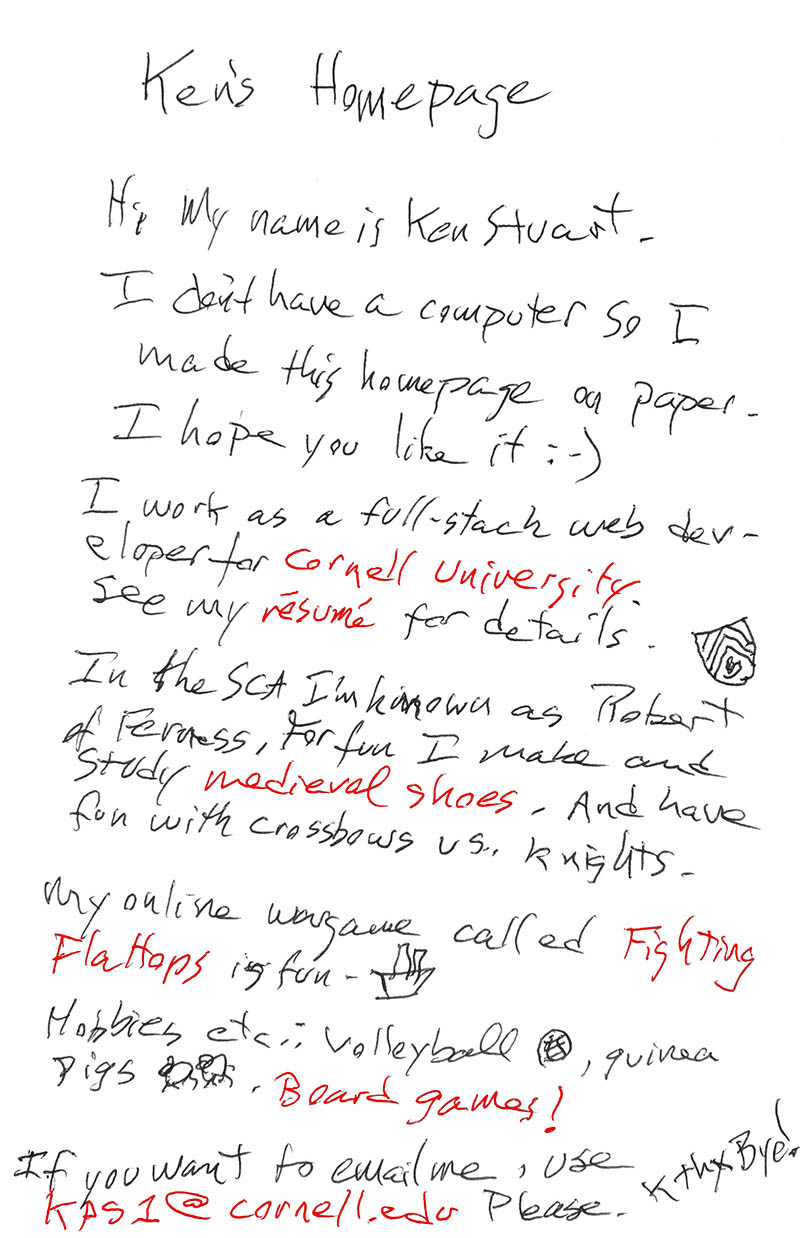 Ken's Homepage
Hi My name is Ken Stuart.
I don't have a computer so I
made this homepage on paper.
I hope you like it :-)
I work as a full-stack web dev-
eloper for Cornell University.
See my résumé for details.
In the SCA I'm known as Robert
of Ferness, For fun I make and
study medieval shoes. And have
fun with crossbows vs. knights.
My online wargame called Fighting
Flattops is fun-
Hobbies etc.: Volleyball, guinea
pigs. Board games!
If you want to email me, use
kps1@cornell.edu Please.
KThxBye!